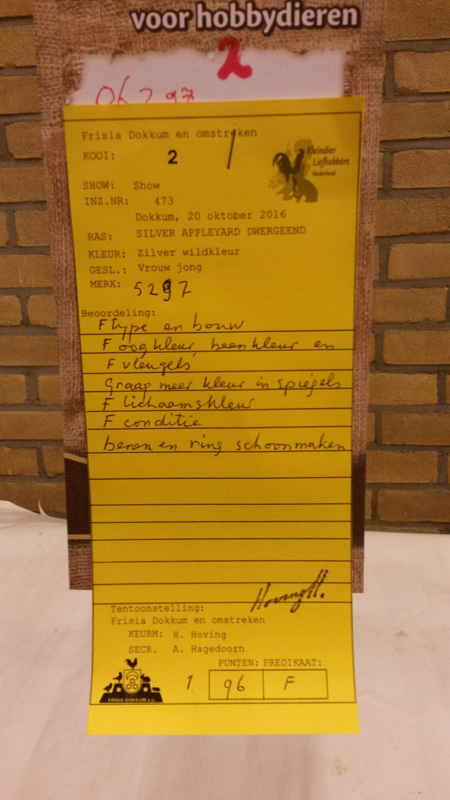 voor hobbydieren
2
06297
Frisia Dokkum en omstreken
KOOI: 2
Kleindier
Liefhebbers
Nederland
SHOW: Show
INZ.NR: 473
Dokkum, 20 oktober 2016
RAS: SILVER APPLEYARD DWERGEEND
KLEUR: Zilver wildkleur
GESL.: Vrouw jong
MERK: 5297
Beoordeling:
F type en bouw
F oogkleur, beenkleur en
F vleugels,
Graag meer kleur in spiegels
F lichaamskleur
F conditie
benen en ring schoonmaken
Hoving H.
Tentoonstelling:
Frisia Dokkum en omstreken
KEURM: H. Hoving
SECR. A. Hagedoorn
PUNTEN: PREDIKAAT:
1 96 F
FRISIA DOKKUM e.o.